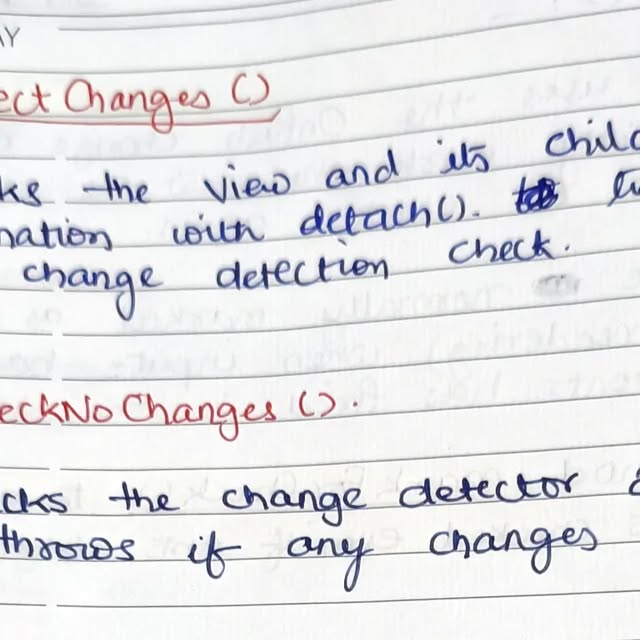 AY
ect Changes ()
ks the view and its chilc
nation with detach().
change detection check.
eckNo Changes ().
cks the change detector
throws if any changes